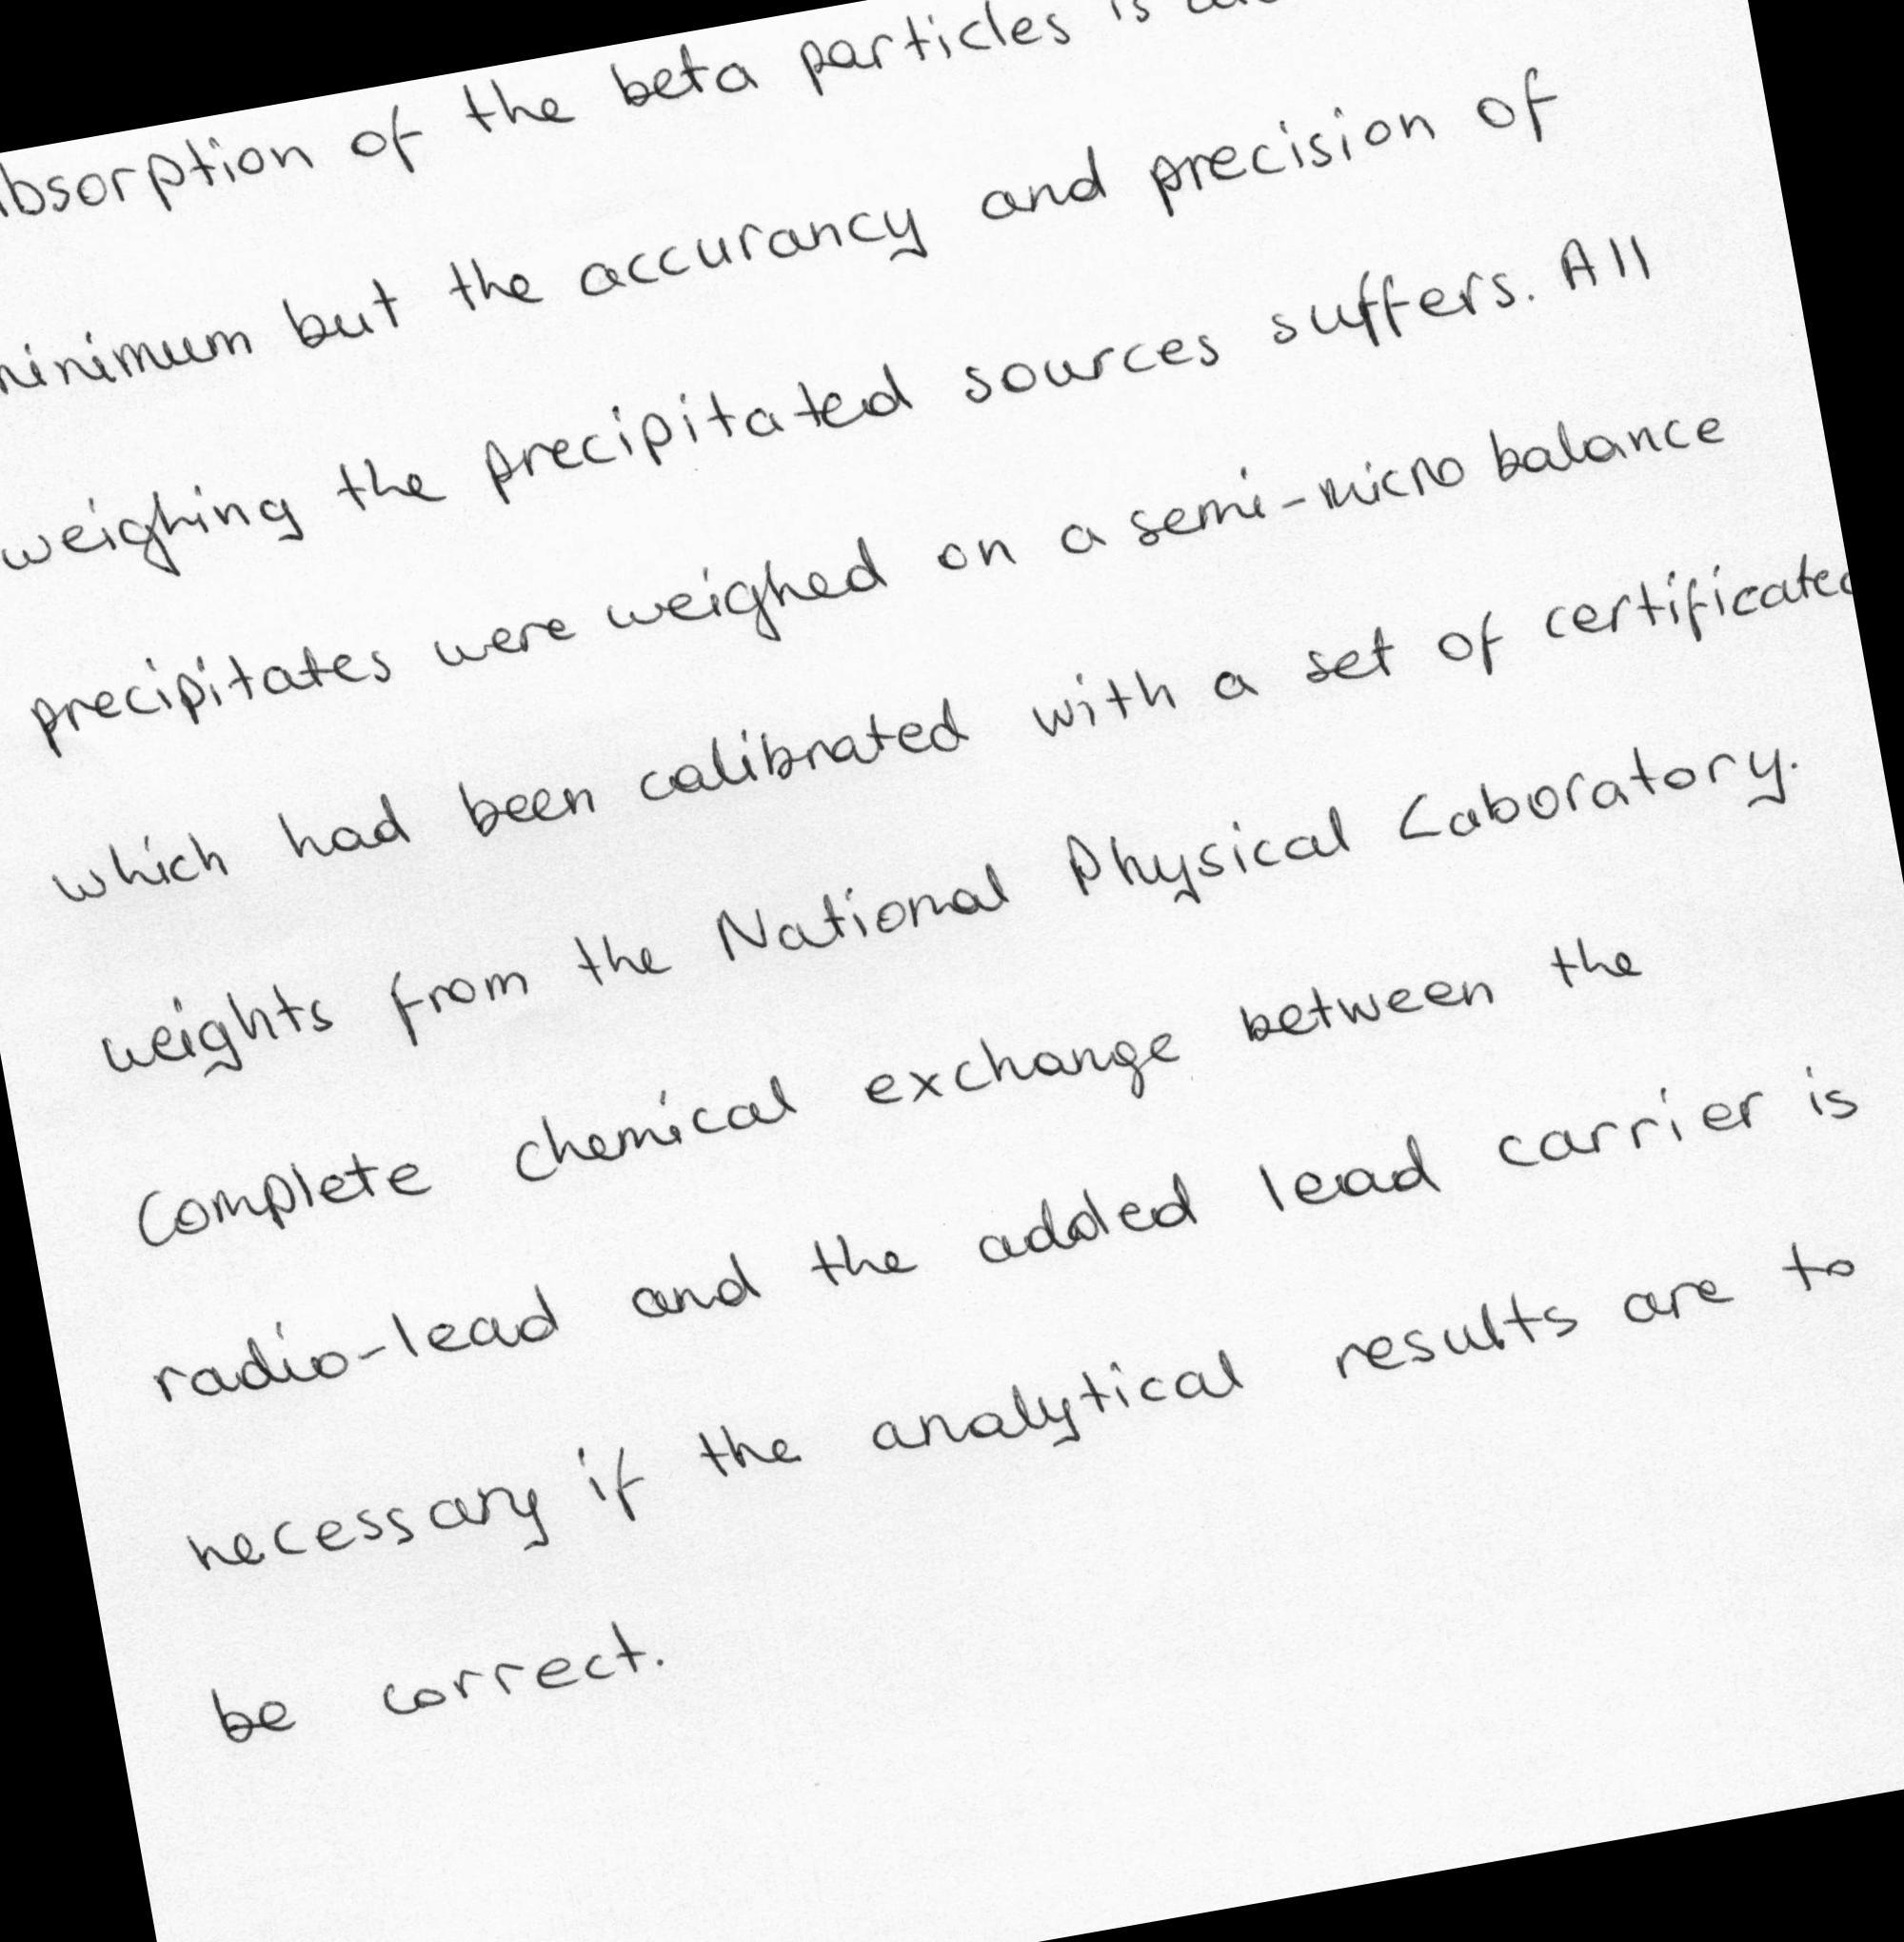 absorption of the beta particles is
minimum but the accurancy and precision of
weighing the precipitated sources suffers. All
precipitates were weighed on a semi-micro balance
which had been calibrated with a set of certificated
weights from the National Physical Laboratory.
Complete chemical exchange between the
radio-lead and the added lead carrier is
necessary if the analytical results are to
be correct.